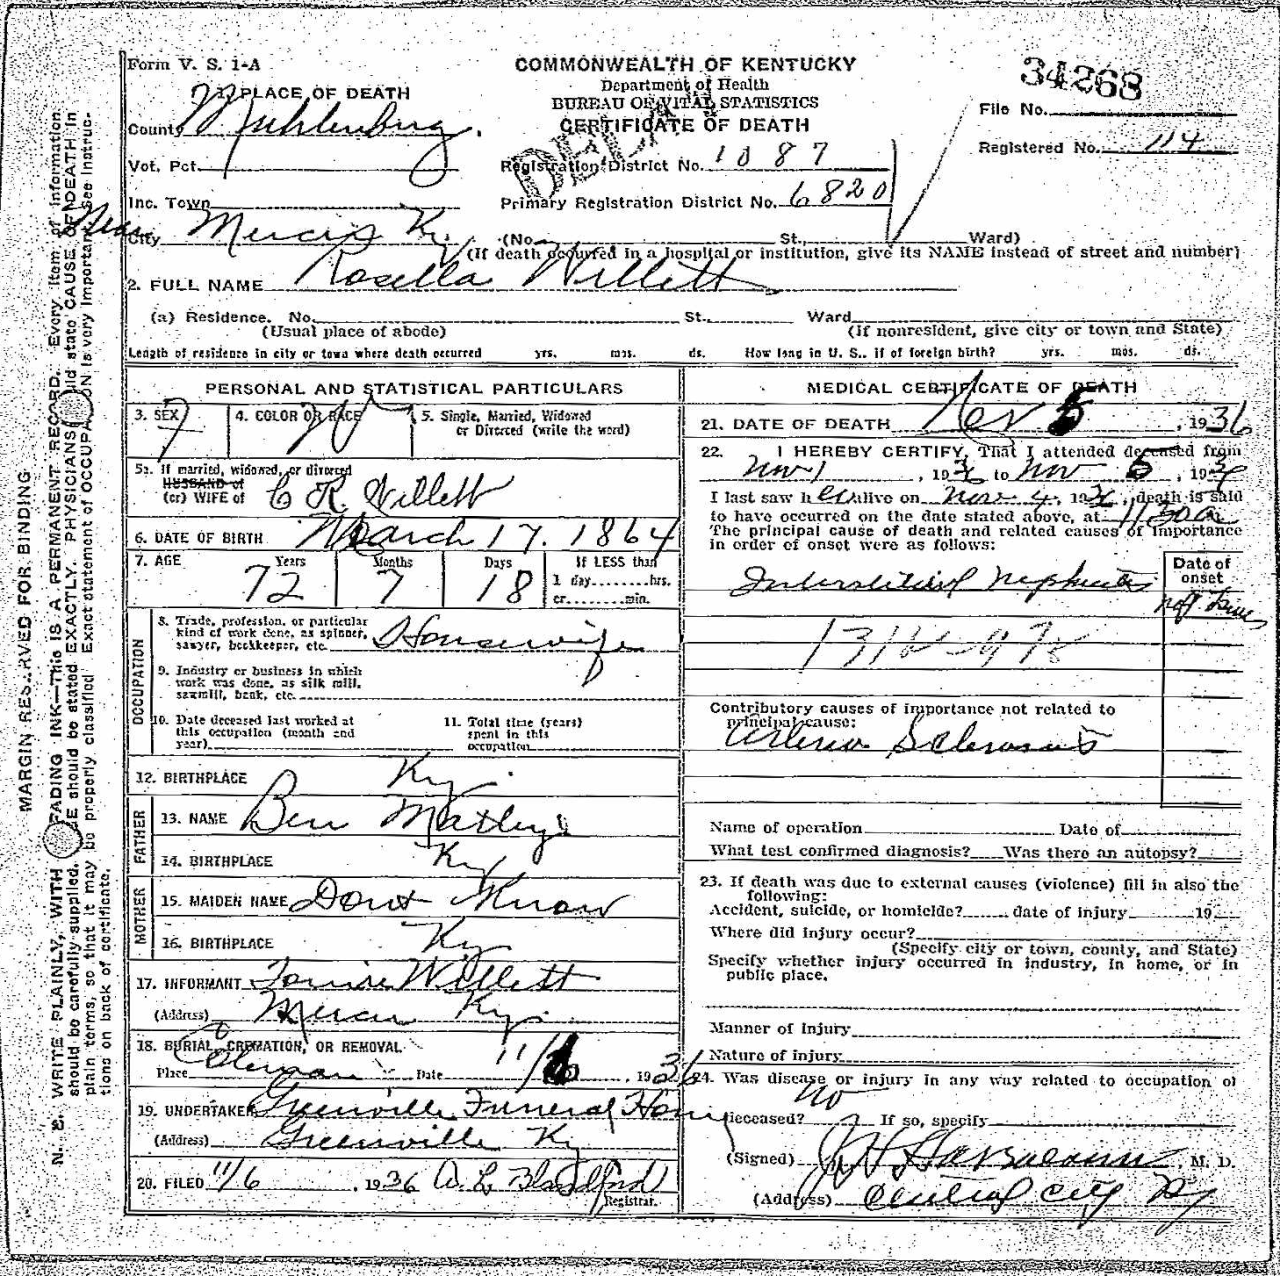 Form V. S. 1-A
COMMONWEALTH OF KENTUCKY
Department of Health
BUREAU OF VITAL STATISTICS
CERTIFICATE OF DEATH
34268
File No.
Registered No. 114
1. PLACE OF DEATH
County Muhlenburg.
Vot. Pct.
Registration District No. 1087
Inc. Town
Primary Registration District No. 6820
near
City Mercer Ky (No. St., Ward)
(If death occurred in a hospital or institution, give its NAME instead of street and number)
2. FULL NAME Rosella Willett
(a) Residence. No. St., Ward
(Usual place of abode) (If nonresident, give city or town and State)
Length of residence in city or town where death occurred yrs. mos. ds. How long in U. S., if of foreign birth? yrs. mos. ds.
PERSONAL AND STATISTICAL PARTICULARS
3. SEX F 4. COLOR OR RACE W 5. Single, Married, Widowed
or Divorced (write the word)
5a. If married, widowed, or divorced
HUSBAND of
(or) WIFE of C R Willett
6. DATE OF BIRTH March 17. 1864
7. AGE Years Months Days If LESS than
72 7 18 1 day........hrs.
or.......min.
OCCUPATION
8. Trade, profession, or particular
kind of work done, as spinner,
sawyer, bookkeeper, etc. Housewife
9. Industry or business in which
work was done, as silk mill,
sawmill, bank, etc.
10. Date deceased last worked at
this occupation (month and
year)
11. Total time (years)
spent in this
occupation
12. BIRTHPLACE Ky.
FATHER
13. NAME Ben
14. BIRTHPLACE Ky
MOTHER
15. MAIDEN NAME Dont Know
16. BIRTHPLACE Ky
17. INFORMANT Willett
(Address) Mercer Ky.
18. BURIAL, CREMATION, OR REMOVAL
Place Coleman Date 11/6, 1936
19. UNDERTAKER Greenville Funeral Home
(Address) Greenville Ky
20. FILED 11/6, 1936 A. L. Blandford
Registrar.
MEDICAL CERTIFICATE OF DEATH
21. DATE OF DEATH Nov 5, 1936
22. I HEREBY CERTIFY, That I attended deceased from
Nov 1, 1936 to Nov 5, 1936
I last saw her alive on Nov 4, 1936, death is said
to have occurred on the date stated above, at 11:30 a
The principal cause of death and related causes of importance
in order of onset were as follows:
Date of
onset
Interstitial Nephritis
Contributory causes of importance not related to
principal cause:
Arterio Sclerosis
Name of operation Date of
What test confirmed diagnosis? Was there an autopsy?
23. If death was due to external causes (violence) fill in also the
following:
Accident, suicide, or homicide? date of injury 19
Where did injury occur?
(Specify city or town, county, and State)
Specify whether injury occurred in industry, in home, or in
public place.
Manner of Injury
Nature of injury
24. Was disease or injury in any way related to occupation of
deceased? No If so, specify
(Signed) M. D.
(Address) Central City Ky
MARGIN RESERVED FOR BINDING
N. B. WRITE PLAINLY, WITH UNFADING INK—This IS A PERMANENT RECORD. Every item of information
should be carefully supplied. AGE should be stated EXACTLY. PHYSICIANS should state CAUSE OF DEATH in
plain terms, so that it may be properly classified. Exact statement of OCCUPATION is very important. See instruc-
tions on back of certificate.